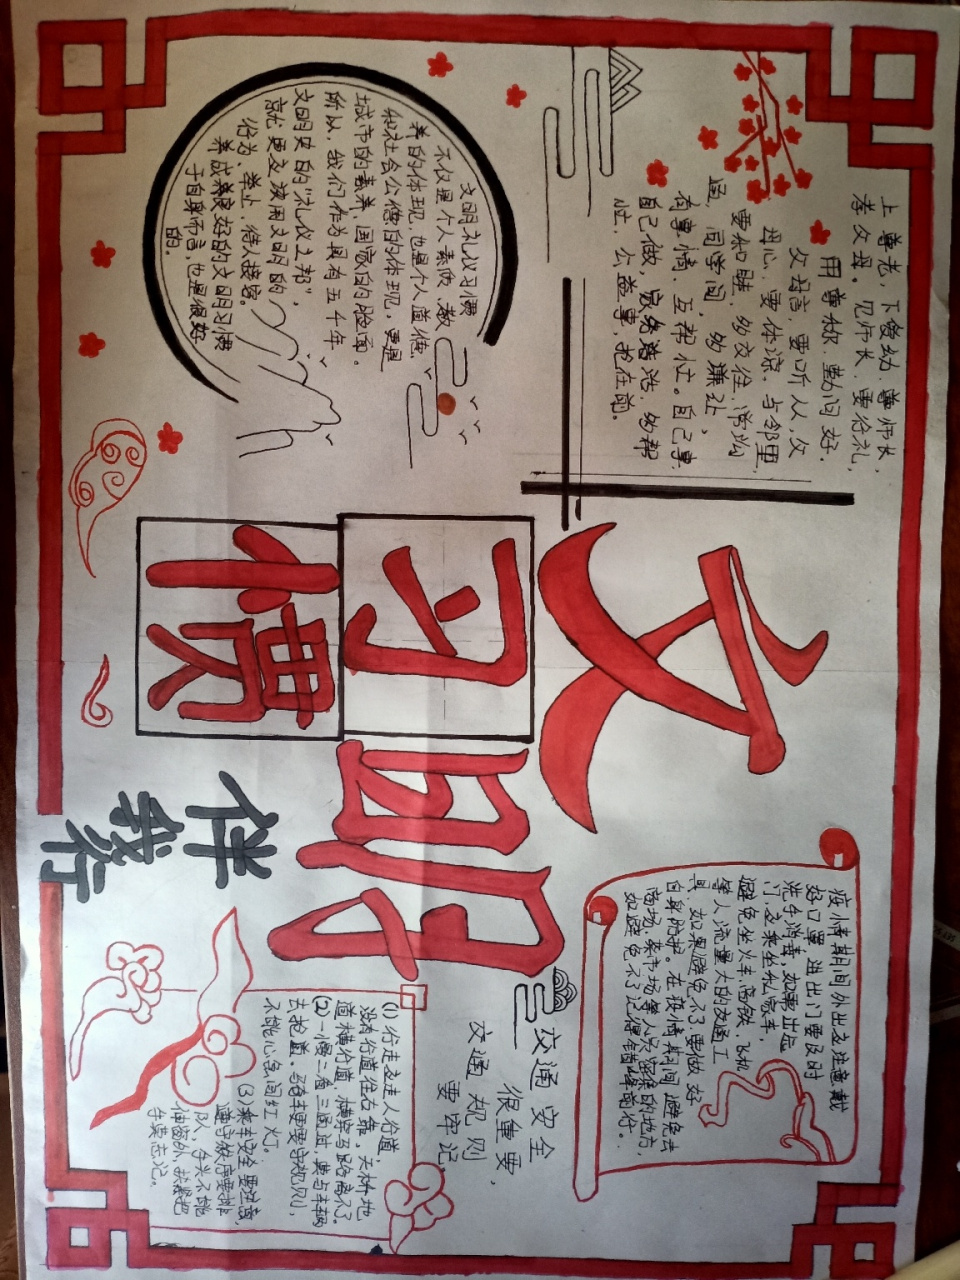 上尊老,下爱幼.尊师长,
孝父母。见师长,要行礼,
用尊称.勤问好.
父母言,要听从,父
母心,要体谅.与邻里,
要和睦.多交往,常沟
通.同学间,多谦让,
有事情,互帮忙。自己事
自己做,家务活.多帮
忙.公益事,抢在前。
文明礼仪习惯
不仅是个人素质、教
养的体现,也是个人道德
和社会公德的体现,更是
城市的素养.国家的脸面。
所以,我们作为具有五千年
文明史的“礼仪之邦”,
就更应该用文明的
行为、举止,待人接客。
养成养良好的文明习惯
于自身而言,也是很好
的。
文明
习惯
伴我行
疫情期间外出应注意戴
好口罩,进出门要及时
洗手消毒,如需出远
门,应乘坐私家车,
避免坐火车高铁、飞机
等人流量大的交通工
具,如果避免不了,要做好
自身防护。在疫情期间避免去
商场、菜市场等人员密集的地方,
如避免不了记得错峰前行。
交通安全
很重要,
交通规则
要牢记,
(1)行走应走人行道,
没有行道往右靠,天桥地
道横行道,横穿马路离不了。
(2)一慢二看三通过,莫与车辆
去抢道.骑车更要守规则,
不能心急闯红灯。
(3)乘车安全要注意,
遵守秩序要排
队,手头不能
伸窗外,扶紧把
手莫忘记。